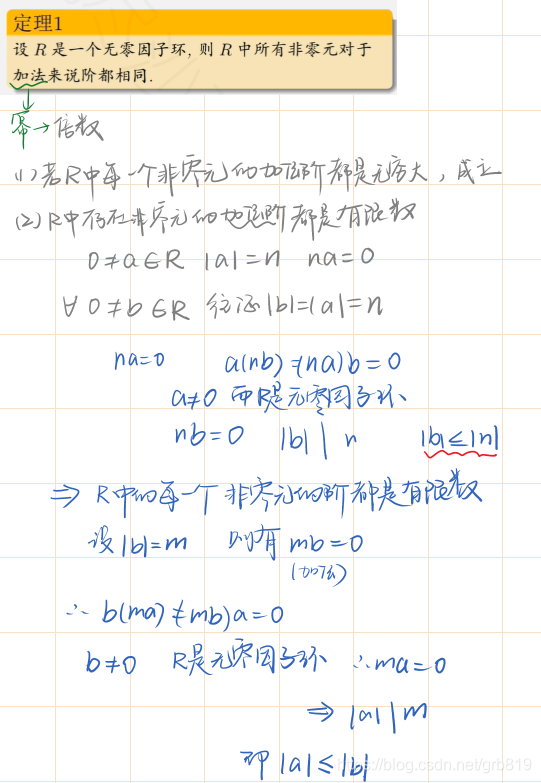 定理1
设 R 是一个无零因子环, 则 R 中所有非零元对于
加法来说阶都相同.
幂→倍数
(1) 若R中每一个非零元的加法阶都是无穷大，成立
(2) R中存在非零元的加法阶都是有限数
0≠a∈R |a|=n na=0
∀ 0≠b∈R 往证|b|=|a|=n
na=0 a(nb)=(na)b=0
a≠0 而R是无零因子环
nb=0 |b| | n |b|≤|n|
⇒ R中的每一个非零元的阶都是有限数
设|b|=m 则有 mb=0
(加法)
∴ b(ma)=(mb)a=0
b≠0 R是无零因子环 ∴ma=0
⇒ |a| | m
即 |a|≤|b|
https://blog.csdn.net/grb819